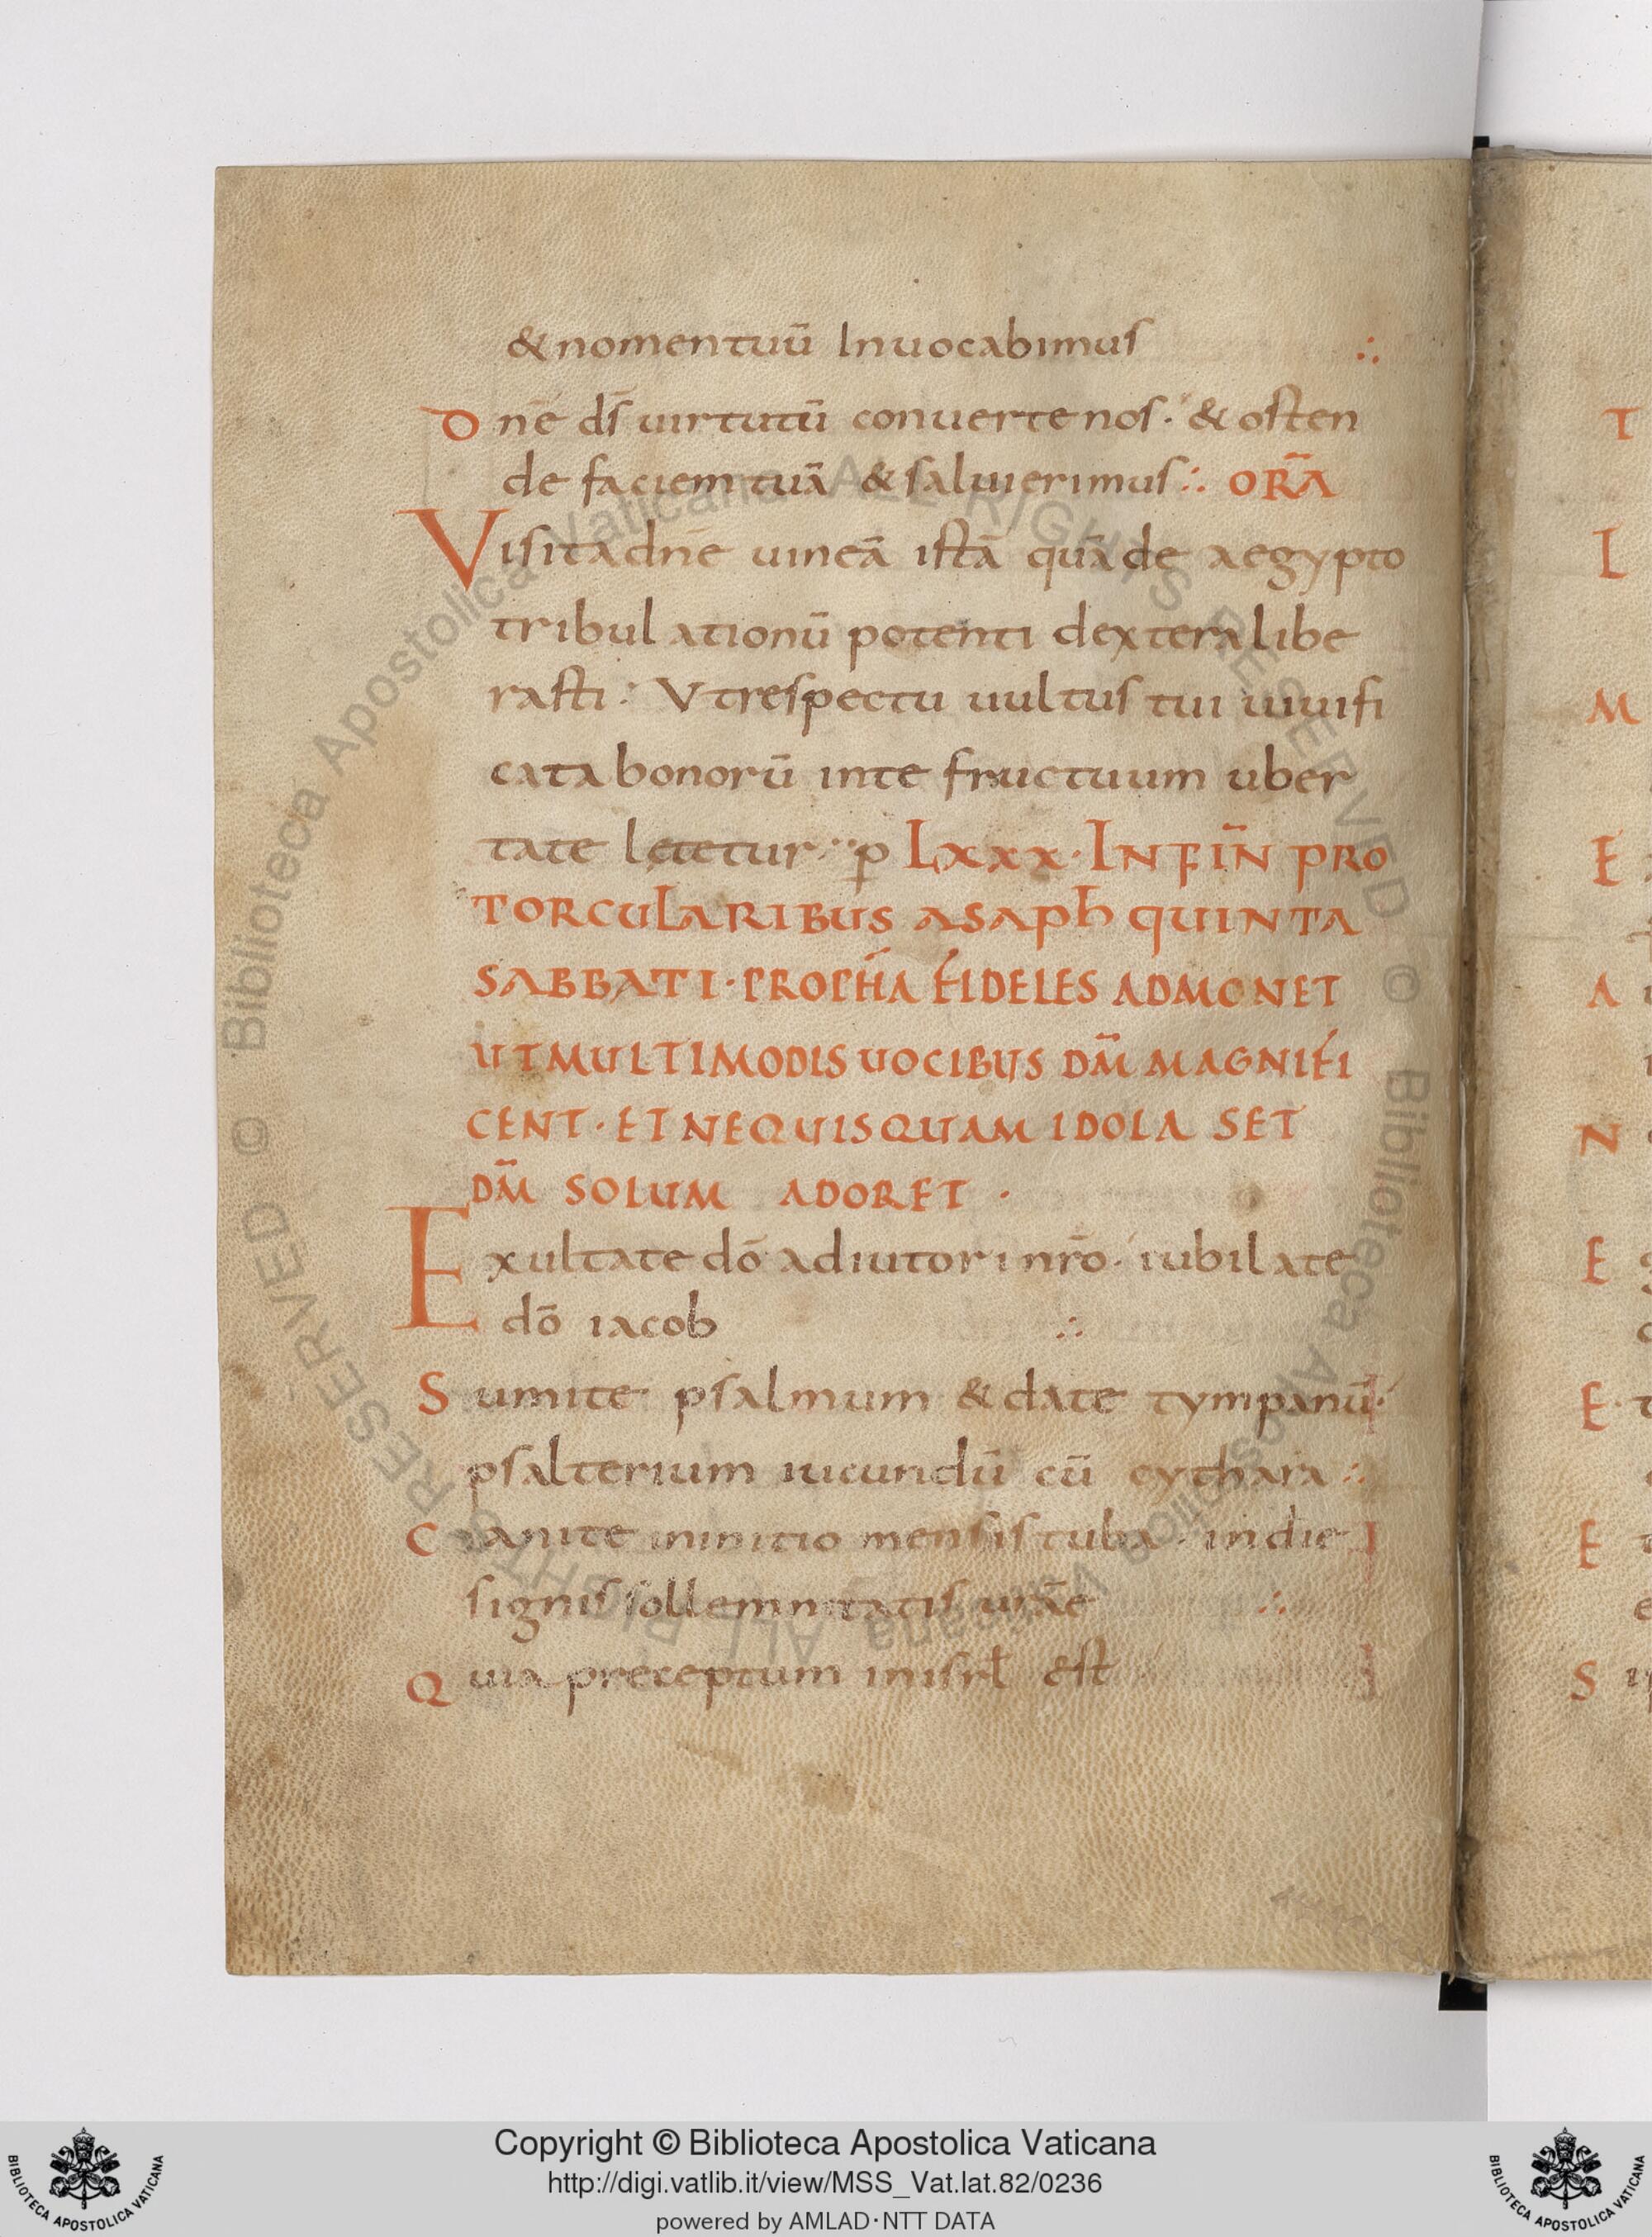 & nomen tuū Inuocabimus ∴
Dnē ds̄ uirtutū conuerte nos · & osten
de faciem tuā & salui erimus ∴ ORÃ
Visita dnē uineā istā quā de aegypto
tribulationū potenti dextera libe
rasti · Vt respectu uultus tui uiuifi
cata bonorū in te fructuum uber
tate lętetur p LXXX · IN FIÑ PRO
TORCULARIBUS ASAPH QUINTA
SABBATI · PROPHA FIDELES ADMONET
UT MULTIMODIS UOCIBUS DM̄ MAGNIFI
CENT · ET NEQUISQUAM IDOLA SET
DM̄ SOLUM ADORET ·
Exultate dō adiutori nrō · iubilate
dō iacob ∴
Sumite psalmum & date tympanū ·
psalterium iucundū cū cythara ∴
Canite in initio mensis tuba · in die
signis sollemnitatis urāe ∴
Quia preceptum in isrł est
T
L
M
E
A
N
E
E · t
E
S
Copyright © Biblioteca Apostolica Vaticana
http://digi.vatlib.it/view/MSS_Vat.lat.82/0236
powered by AMLAD·NTT DATA
BIBLIOTECA APOSTOLICA VATICANA
BIBLIOTECA APOSTOLICA VATICANA
© Biblioteca Apostolica Vaticana ALL RIGHTS RESERVED © Biblioteca Apostolica Vaticana ALL RIGHTS RESERVED